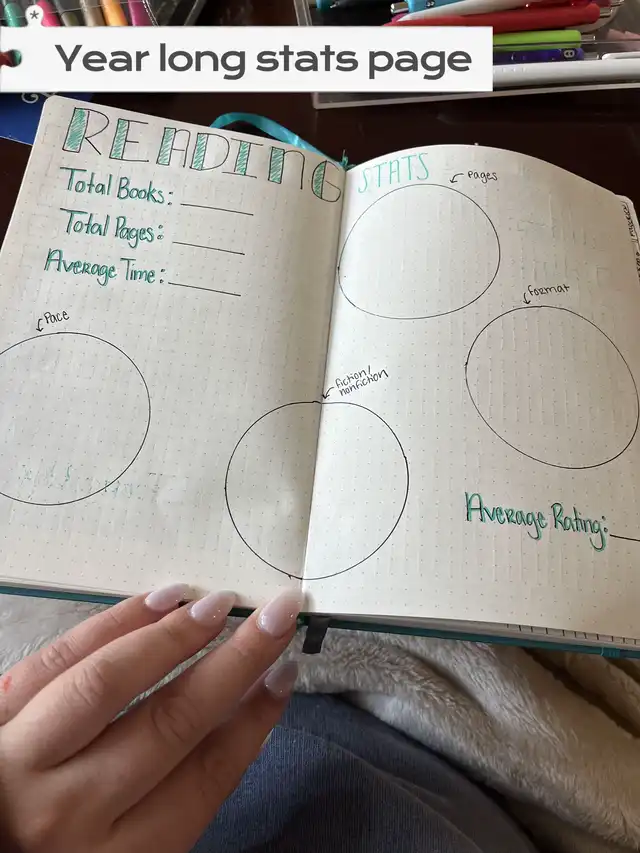 Year long stats page
READING
STATS
Total Books:
Total Pages:
Average Time:
Pages
format
Pace
fiction/
nonfiction
Average Rating: